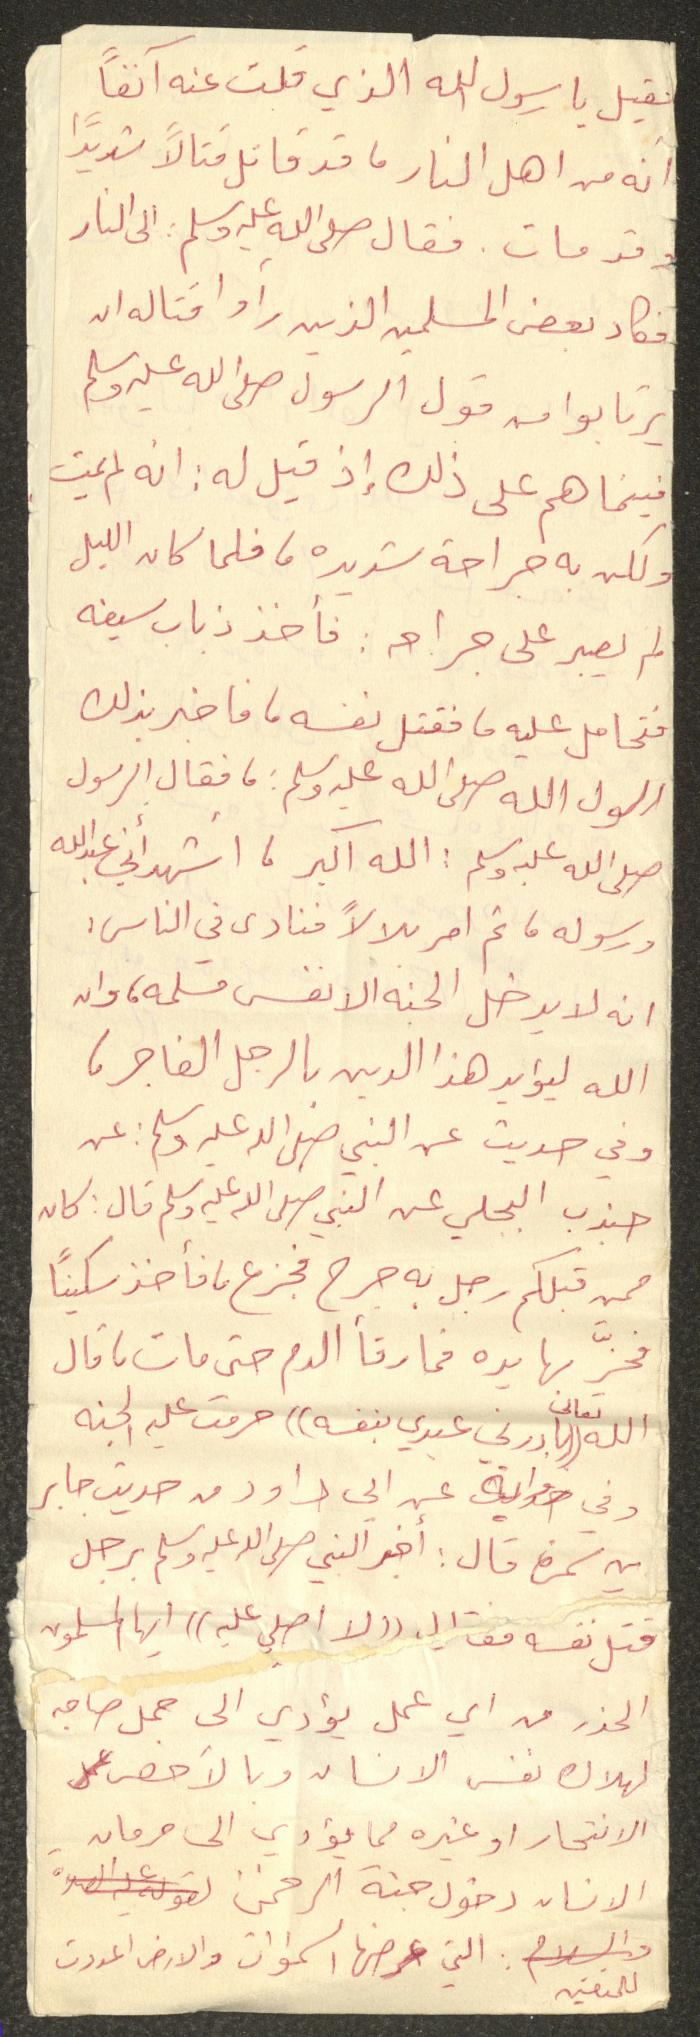 فقيل يا رسول الله الذي قلت عنه آنفاً
أنه من اهل النار، قد قاتل قتالاً شديداً
وقد مات. فقال صلى الله عليه وسلم: الى النار
فكاد بعض المسلمين الذين رأوا قتاله ان
يرتابوا من قول الرسول صلى الله عليه وسلم
فبينما هم على ذلك إذ قيل له: انه لم يمت
ولكن به جراحة شديده، فلما كان الليل
لم يصبر على جراحه: فأخذ ذباب سيفه
فتحامل عليه، فقتل نفسه، فاخبر بذلك
الرسول الله صلى الله عليه وسلم:، فقال الرسول
صلى الله عليه وسلم: الله اكبر، أشهد أني عبدالله
ورسوله، ثم امر بلالاً فنادى في الناس:
انه لا يدخل الجنه الا نفس مسلمه، وان
الله ليؤيد هذا الدين بالرجل الفاجر،
وفي حديث عن النبي صلى الله عليه وسلم: عن
جندب البجلي عن النبي صلى الله عليه وسلم قال: كان
ممن قبلكم رجل به جرح فجزع، فأخذ سكيناً
فحزَّ بها يده فما رقأ الدم حتى مات، قال
الله تعالى ((بادرني عبدي بنفسه)) حرمت عليه الجنه
وفي رواية عن ابي داود من حديث جابر
بن سمرة قال: أخبر النبي صلى الله عليه وسلم برجل
قتل نفسه فقال ((لا اصلي عليه)) ايها المسلمون
الحذر من اي عمل يؤدي الى حمل صاحبه
لهلاك نفس الانسان وبالأخص
الانتحار او غيره مما يؤدي الى حرمان
الانسان دخول جنة الرحمن لقوله عليه الصلاة
والسلام: التي عرضها السموات والارض اعددت
للمتقين